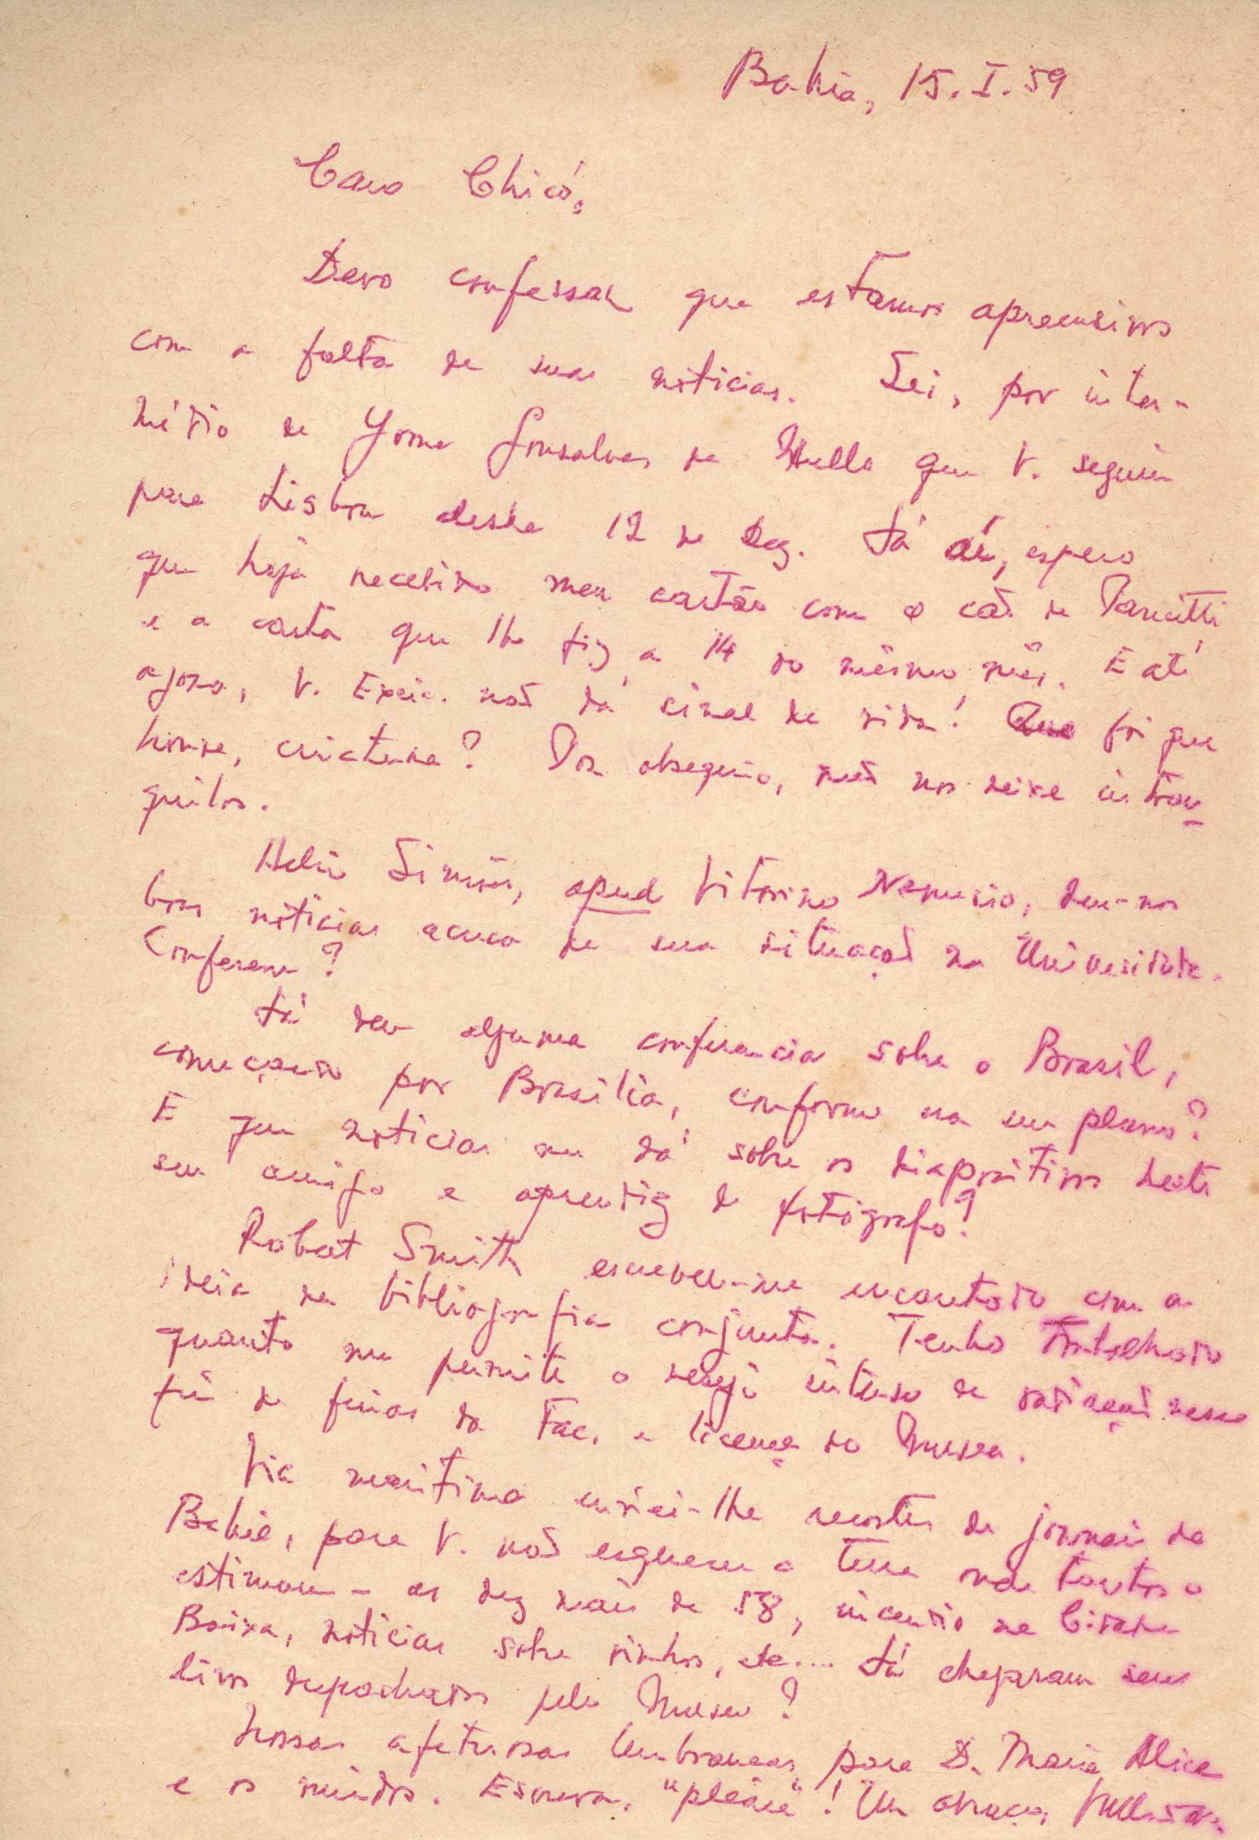 Bahia, 15.I.59
Caro Chicó,
Devo confessar que estamos apreensivos
com a falta de suas noticias. Sei, por inter-
médio de Gonsalves de Mello que V. seguiu
para Lisboa desde 12 de Dez. Já aí, espero
que haja recebido meu cartão com o cais de Pancetti
e a carta que lhe fiz a 14 do mesmo mês. E até
agora, V. Excia. não dá sinal de vida! Que foi que
houve, criatura? Por obsequio, não nos deixe intran-
quilos.
Helio Simões, apud Vitorino Nemesio, deu-nos
boas noticias acerca de sua situação na Universidade.
Confere?
Já deu alguma conferencia sobre o Brasil,
começando por Brasília, conforme era seu plano?
E que noticias me dá sobre os diapositivos deste
seu amigo e aprendiz de fotógrafo?
Robert Smith escreveu-me encantado com a
ideia da bibliografia conjunta. Tenho trabalhado
quanto me permite o desejo intenso de vadiação nesse
fim de ferias da Fac. e licença do Museu.
Via maritima enviei-lhe recortes de jornais da
Bahia, para V. não esquecer a terra onde tantos o
estimam - as dez mais de 58, incendio na Cidade
Baixa, noticias sobre vinhos, etc... Já chegaram seus
livros despachados pelo Museu?
Nossas afetuosas lembranças para D. Maria Alice
e os miudos. Escreva, "please"! Um abraço,